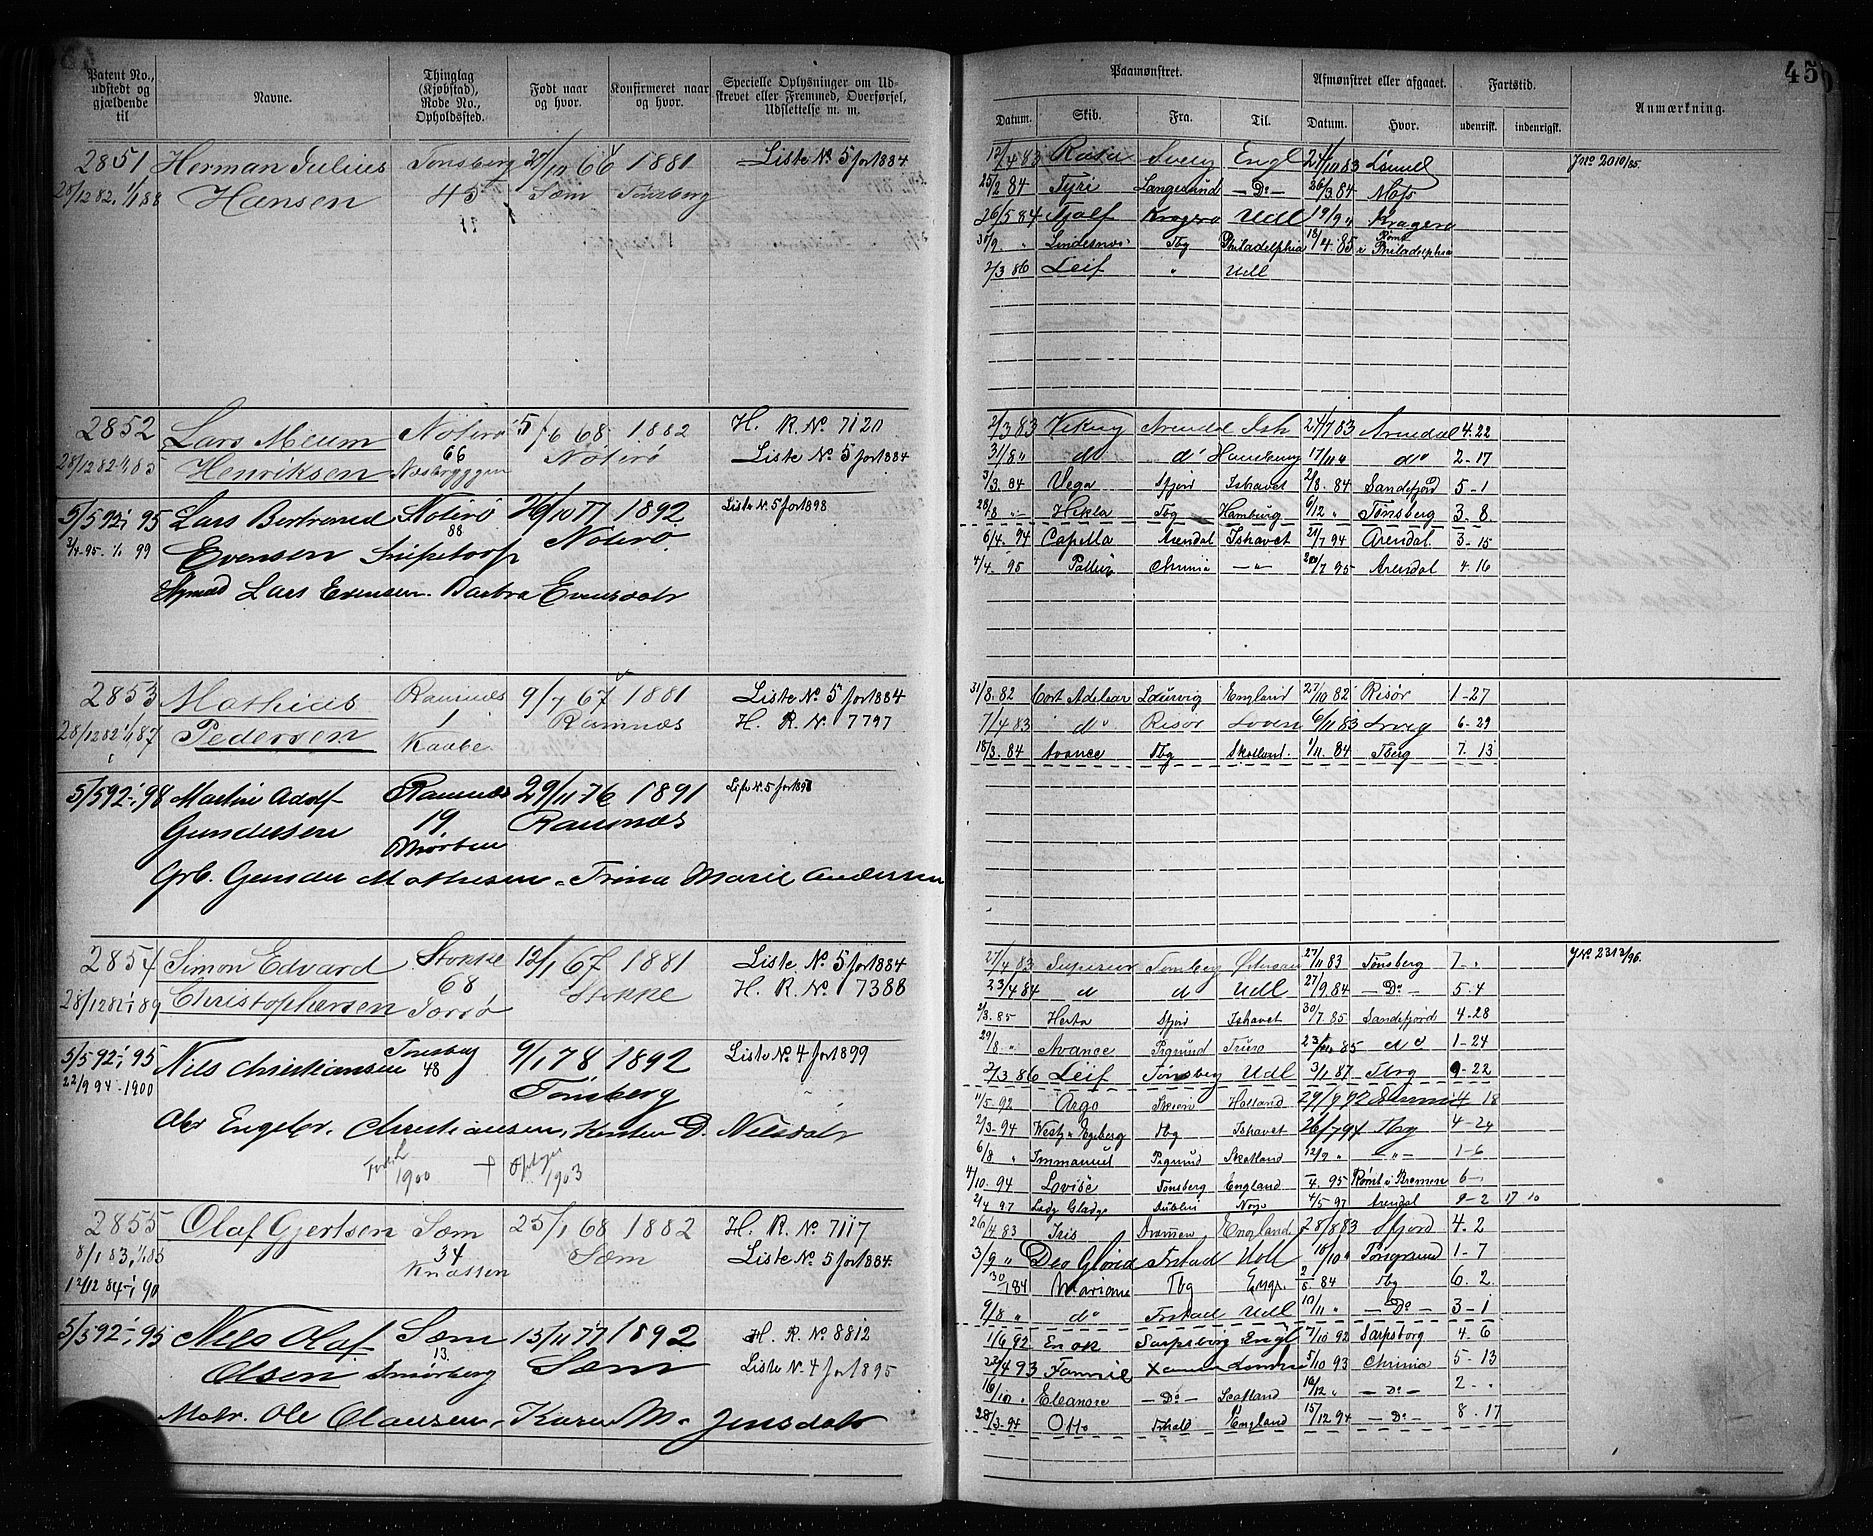 45
Patent No., udstedt og gjældende til
Navne.
Thinglag (Kjøbstad), Rode No., Opholdssted.
Født naar og hvor.
Konfirmeret naar og hvor.
Specielle Oplysninger om Udskrevet eller Fremmed, Overførsel, Udslettelse m. m.
Paamønstret.
Afmønstret eller afgaaet.
Fartstid.
Anmærkning.
Datum. Skib. Fra. Til. Datum. Hvor. udenrigsk. indenrigsk.
2851 Herman Julius Tønsberg 1881 Liste No. 5 for 1884
28/12 82. 1/1 88 Hansen 45 Sem Tønsberg
21
12/4 83 Engl 83 Jno 2010/85
25/2 84 Tyri Langesund — Do — 26/3 84 Moss
26/5 84 Fjalf Kragerø Udl 19/9 " Kragerø
Lindesnæs Tbg Philadelphia 18/4 85 Rømt i Philadelphia
2/3 86 Leif " Udl
2852 Lars Meum Nøterø 5/6 68 1882 H. R. No. 7120
28/12 82 Henriksen 66 Nøterø Liste No. 5 for 1884
5/5 92 - 95 Lars Bertrand Nøterø 26/10 77 1892 Liste No. 5 for 1898
3/4 95 - 1/1 99 Evensen 88 Nøterø
Lars Evensen. Barbra Evensdatr
2/3 83 Viking Arendal Ish 24/7 83 Arendal 4-22
31/8 " do do Hamburg 17/11 " do 2-17
3/3. 84 Vega Sfjord Ishavet 2/8. 84 Sandefjord 5-1
28/8 " Hekla Tbg Hamburg 6/12 " Tønsberg 3. 8
6/4. 94 Capella Arendal Ishavet 21/7 94 Arendal 3-15
4/4. 95 Chrinia — " — 20/7 95 Arendal 4.16
2853 Mathias Ramnæs 9/7 67 1881 Liste No. 5 for 1884
28/12 82 1/1 87 Pedersen 1 Ramnæs H. R. No. 7797
Kaabe
5/5 92 - 98 Martin Adolf Ramnæs 29/11 76 1891
Gundersen 19 Ramnæs
Grb. Gunder Mathisen. Trina Marie Andersen
31/8. 82 Cort Adelaar Laurvig England 27/10 82 Risør 1-27
7/4 83 do Risør 6/11 83 Lrvig 6-29
18/3. 84 Avance Tbg Skotland. 1/11. 84 Tberg 7. 13
2854 Simon Edvard Stokke 12/1 67 1881 Liste No. 5 for 1884
28/12 82 - 89 Christophersen 68 Stokke H. R. No. 7388
5/5 92 - 95 Nils Christiansen Tønsberg 9/1 78 1892 Liste No. 4 for 1899
22/9 94 - 1900 48 Tønsberg
Engebr. Christiansen, Kirsten D. Nilsdatr
1900 † 1903
27/4 83 Superior Tønsberg 27/11 83 Tønsberg 7. " Jno 2313/96.
23/4 84 d d Udl 27/9. 84 — Do — 5-4
2/3. 85 Herta Sfjord Ishavet 30/7. 85 Sandefjord 4-28
29/8 " Avance Prgrund 85 do 1-24
2/3 86 Leif Tønsberg Udl 3/1 87 Tbrg 9-22
11/5. 92 Argo Skien Holland 29/9 92 4-18
2/3-94 Tbg Ishavet 26/7 94 Tbrg 4-24
6/8 " Immanuel Prgrund Skotland 12/9 " — " — 1-6
4/10. 94 Lovise Tønsberg England 95 Rømt i Bremen 6-
2/4 97 Lady Gladys Dublin 4/5 97 Arendal 9-2 17 10
2855 Olaf Gjertsen Sem 25/1 68 1882 H. R. No. 7117
8/1 83, 1/1 85 34 Sem Liste No. 5 for 1884.
12/12 84 - 90 Knatten
5/5 92 - 95 Nils Olaf Sem 15/11 77 1892 H. R. No. 8812
Olsen 13. Sem Liste No. 4 for 1895
Smørberg
Matr. Ole Olausen, Karen M. Jensdatr
26/4 83 Iris Dramen England 28/8 83 Sfjord 4-2
3/9 " Deo Gloria Frstad Udl 10/10 " Porsgrund 1-7
Mariane Tbg Engl. 84 Tbg 6. 2
9/8 " do Frstad Udl 10/11 " — Do — 3-1
1/6 92 Enok Sarpsborg Engl 7/10 92 Sarpsborg 4. 6
22/4 93 Fannie 5/10 93 Chrinia 5-13
16/10 " Eleanor — Do — Scotland 16/12 " — Do — 2. "
28/3-94 Otto England 15/12 94 — Do — 8. 17